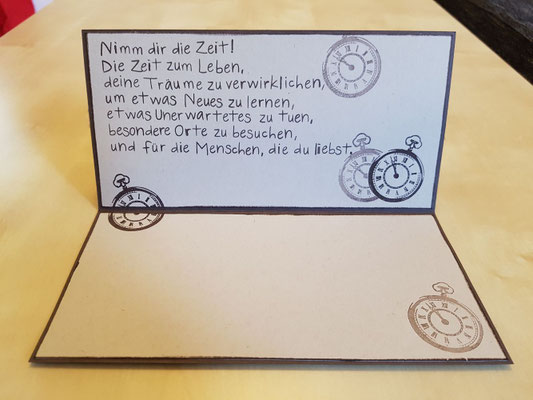 Nimm dir die Zeit!
Die Zeit zum Leben,
deine Träume zu verwirklichen,
um etwas Neues zu lernen,
etwas Unerwartetes zu tuen,
besondere Orte zu besuchen,
und für die Menschen, die du liebst.